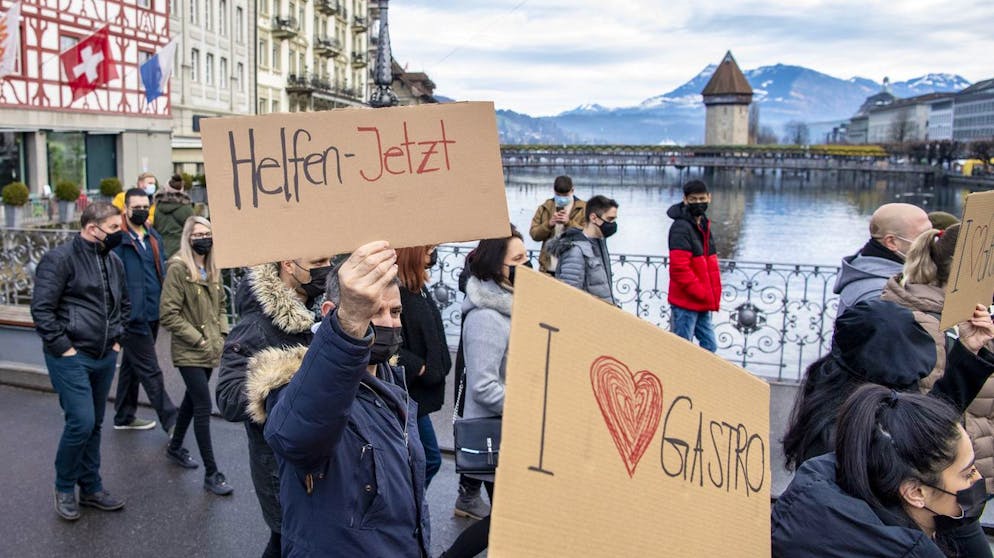 Helfen-Jetzt
I GASTRO
I